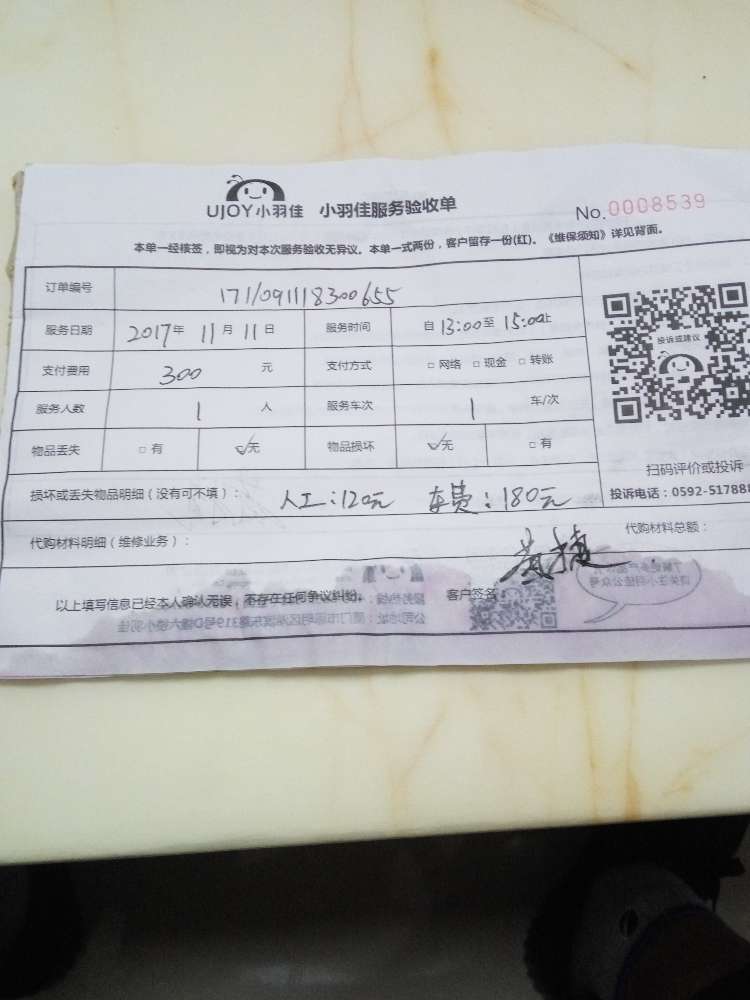 UJOY小羽佳 小羽佳服务验收单 No.0008539
本单一经核签，即视为对本次服务验收无异议。本单一式两份，客户留存一份(红)。《维保须知》详见背面。
订单编号 1711091118300655
服务日期 2017年 11月 11日 服务时间 自 13:00至 15:00止
投诉或建议
支付费用 300 元 支付方式 □ 网络 □ 现金 □ 转账
服务人数 1 人 服务车次 1 车/次
物品丢失 □ 有 ☑无 物品损坏 ☑无 □ 有
扫码评价或投诉
损坏或丢失物品明细（没有可不填）： 人工：120元 车费：180元
投诉电话：0592-517888
代购材料明细（维修业务）： 代购材料总额：
以上填写信息已经本人确认无误，不存在任何争议纠纷。 客户签名